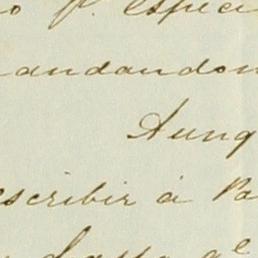 o p. especi
andandon
Aunq
escribir á Pa